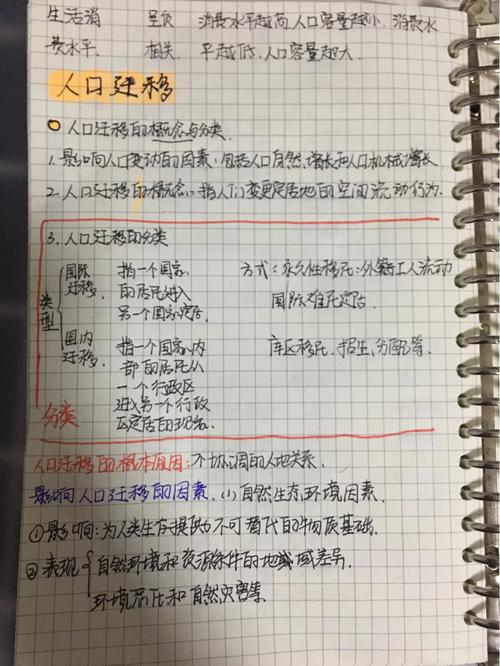 生活消 呈负 消费水平越高,人口容量越小,消费水
费水平. 相关. 平越低,人口容量越大.
人口迁移
人口迁移的概念与分类.
1.影响人口变动的因素:包括人口自然增长和人口机械增长
2.人口迁移的概念:指人们变更定居地的空间流动行为.
3.人口迁移的分类
类型
国际迁移. 指一个国家 方式:永久性移民:外籍工人流动
的居民进入 国际难民定居.
另一个国家定居.
国内迁移. 指一个国家内 库区移民、招生、分配等.
部的居民从
一个行政区
进入另一个行政
区定居的现象.
分类
人口迁移的根本原因:不协调的人地关系.
影响人口迁移的因素.(1)自然生态环境因素.
①影响:为人类生存提供了不可替代的物质基础.
②表现 自然环境和资源条件的地域差异.
环境恶化和自然灾害等